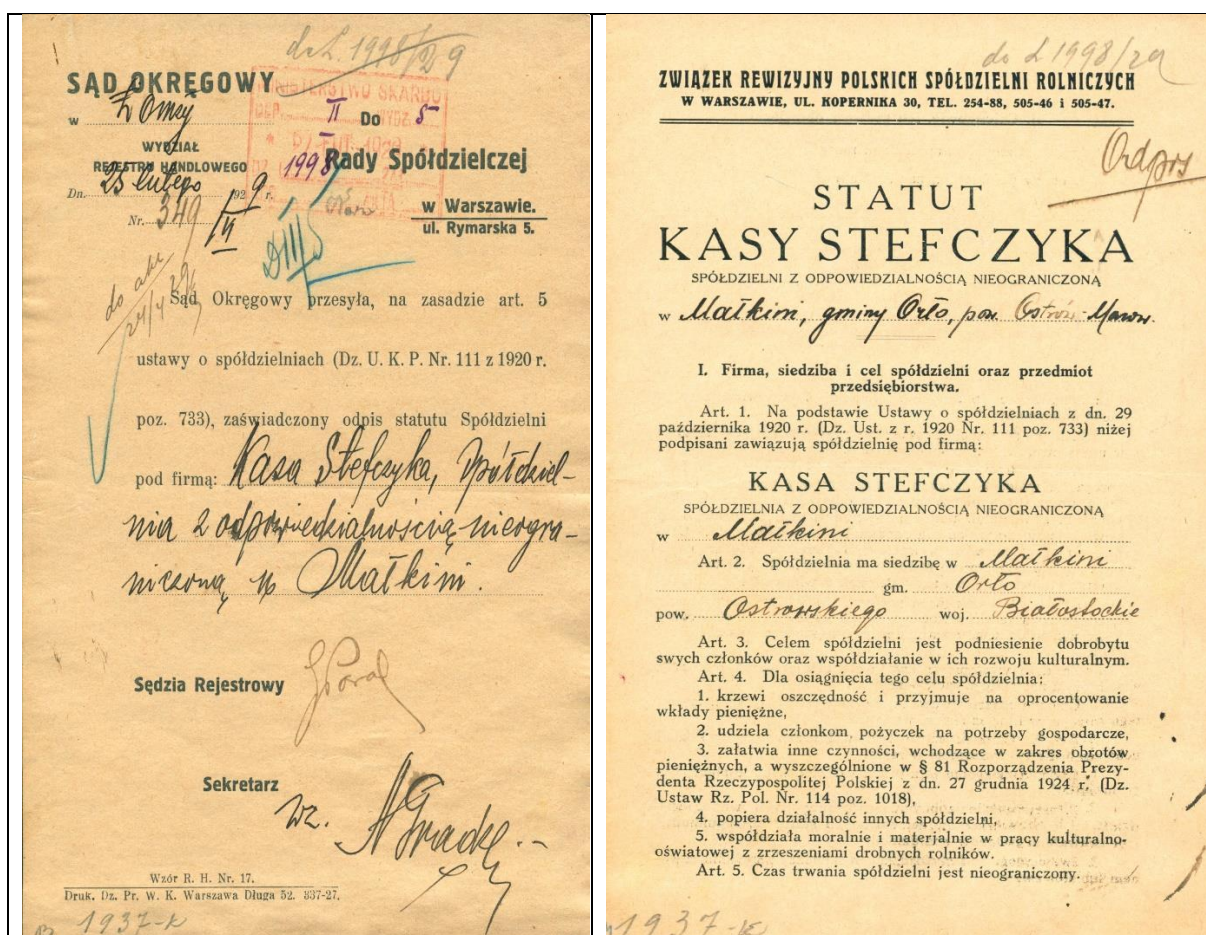 do L. 1998/29
SĄD OKRĘGOWY
w Łomży
WYDZIAŁ
REJESTRU HANDLOWEGO
Dn. 25 lutego 1929 r.
Nr. 349
MINISTERSTWO SKARBU
II 5
1998
Do
Rady Spółdzielczej
w Warszawie.
ul. Rymarska 5.
D III
do akt
Sąd Okręgowy przesyła, na zasadzie art. 5
ustawy o spółdzielniach (Dz. U. K. P. Nr. 111 z 1920 r.
poz. 733), zaświadczony odpis statutu Spółdzielni
pod firmą: Kasa Stefczyka, Spółdziel-
nia z odpowiedzialnością nieogra-
niczoną w Małkini.
Sędzia Rejestrowy
Sekretarz
wz.
Wzór R. H. Nr. 17.
Druk. Dz. Pr. W. K. Warszawa Długa 52. 337-27.
1937-k
do L 1998/29
ZWIĄZEK REWIZYJNY POLSKICH SPÓŁDZIELNI ROLNICZYCH
W WARSZAWIE, UL. KOPERNIKA 30, TEL. 254-88, 505-46 i 505-47.
Odpis
STATUT
KASY STEFCZYKA
SPÓŁDZIELNI Z ODPOWIEDZIALNOŚCIĄ NIEOGRANICZONĄ
w Małkini, gminy Orło, pow. Ostrów-Mazow.
I. Firma, siedziba i cel spółdzielni oraz przedmiot
przedsiębiorstwa.
Art. 1. Na podstawie Ustawy o spółdzielniach z dn. 29
października 1920 r. (Dz. Ust. z r. 1920 Nr. 111 poz. 733) niżej
podpisani zawiązują spółdzielnię pod firmą:
KASA STEFCZYKA
SPÓŁDZIELNIA Z ODPOWIEDZIALNOŚCIĄ NIEOGRANICZONĄ
w Małkini
Art. 2. Spółdzielnia ma siedzibę w Małkini
gm. Orło
pow. Ostrowskiego woj. Białostockie
Art. 3. Celem spółdzielni jest podniesienie dobrobytu
swych członków oraz współdziałanie w ich rozwoju kulturalnym.
Art. 4. Dla osiągnięcia tego celu spółdzielnia:
1. krzewi oszczędność i przyjmuje na oprocentowanie
wkłady pieniężne,
2. udziela członkom pożyczek na potrzeby gospodarcze,
3. załatwia inne czynności, wchodzące w zakres obrotów
pieniężnych, a wyszczególnione w § 81 Rozporządzenia Prezy-
denta Rzeczypospolitej Polskiej z dn. 27 grudnia 1924 r. (Dz.
Ustaw Rz. Pol. Nr. 114 poz. 1018),
4. popiera działalność innych spółdzielni,
5. współdziała moralnie i materjalnie w pracy kulturalno-
oświatowej z zrzeszeniami drobnych rolników.
Art. 5. Czas trwania spółdzielni jest nieograniczony.
1937-k